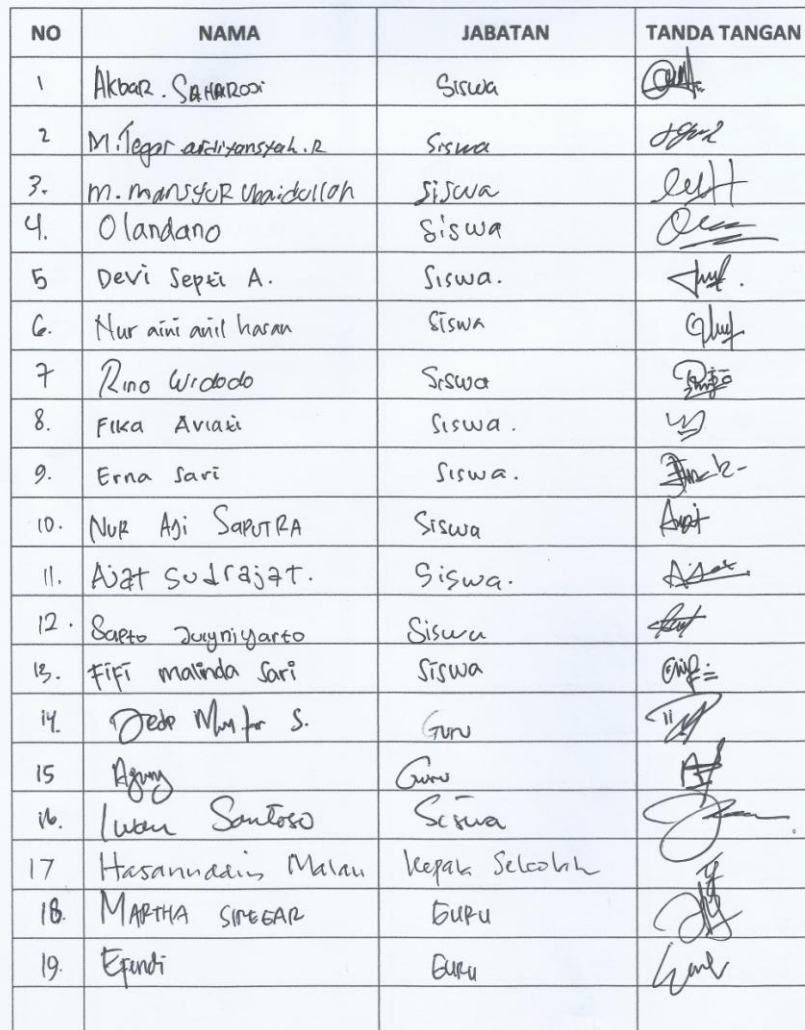 NO NAMA JABATAN TANDA TANGAN
1 Akbar. SAHAROdi Siswa
2 M. Tegar ardiyansyah. R Siswa
3. m. mansyuR Ubaidullah siswa
4. Olandano Siswa
5 Devi Septi A. Siswa.
6. Nur aini anil hasan Siswa
7 Rino Widodo Siswa
8. Fika Aviati Siswa.
9. Erna Sari Siswa.
10. NUR Aji SapuTRA Siswa
11. Ajat sudrajat. Siswa.
12. Sapto Siswa
13. Fifi malinda Sari Siswa
14. Dede S. Guru
15 Agung Guru
16. Iwan Santoso Siswa
17 Hasanuddin Malau Kepala Sekolah
18. MARTHA SIREGAR GURU
19. Efendi GURU